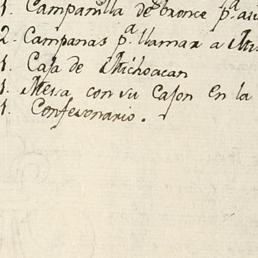 1. Campanilla de bronce pª
2. Campanas pª llamar a Mis
1. Caja de Michoacan
1. Mesa con su Cajon en la
1. Confesonario.